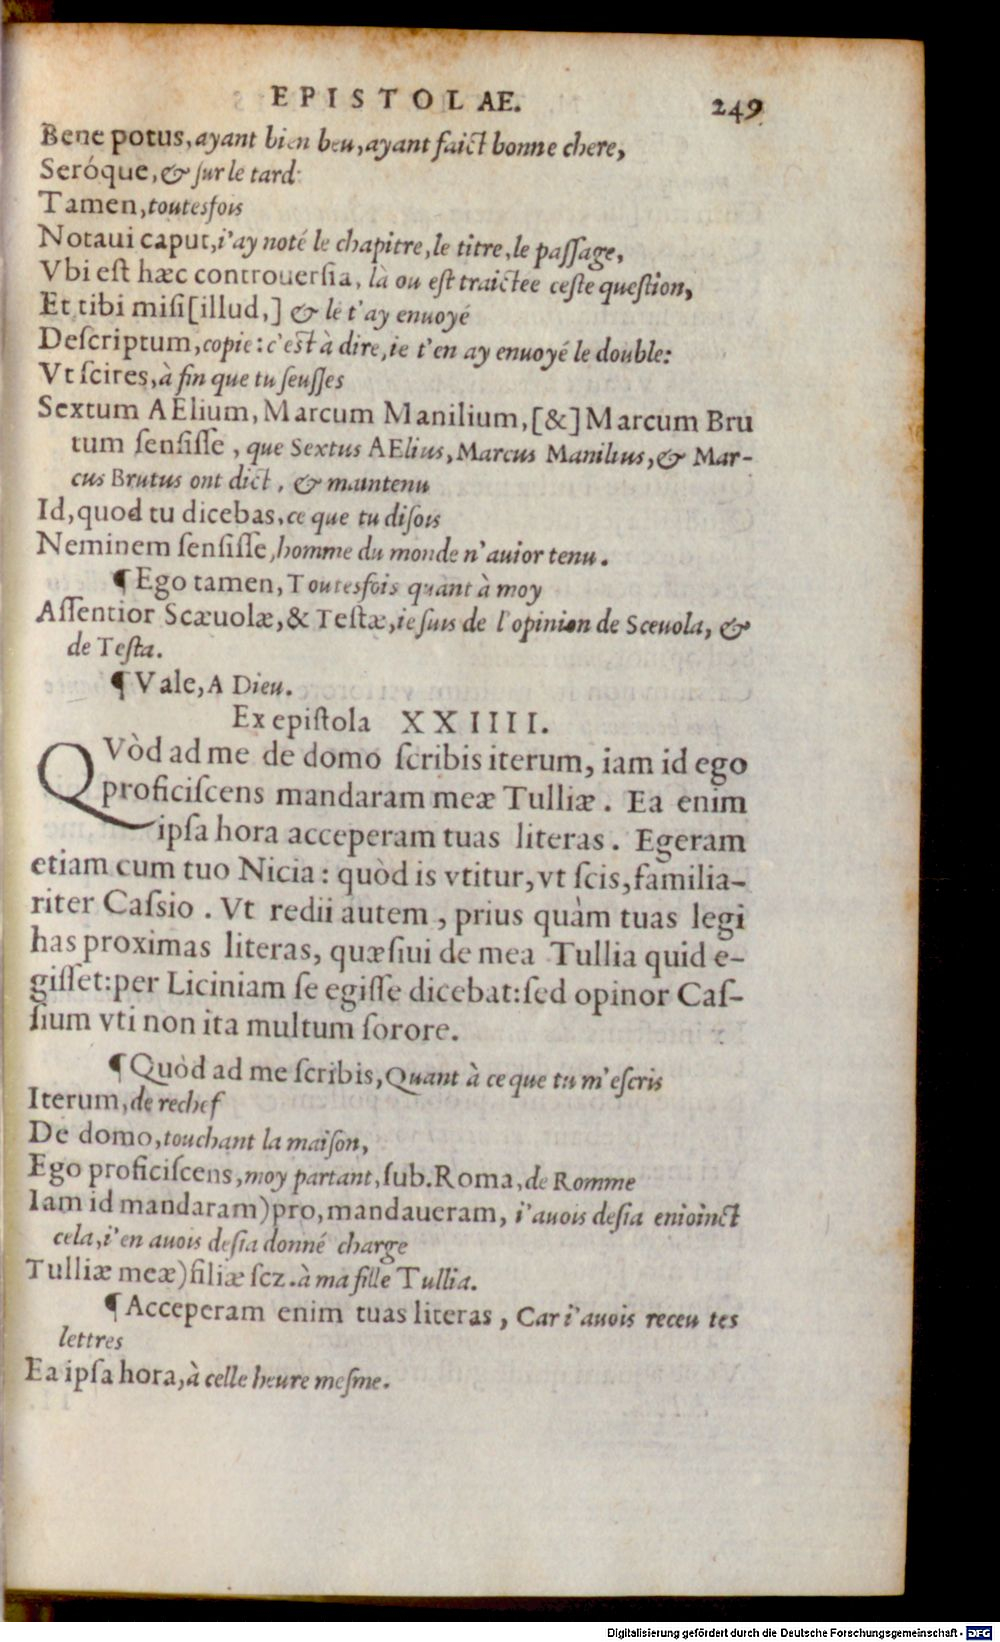 EPISTOLAE. 249
Bene potus, ayant bien beu, ayant faict bonne chere,
Seróque, & ſur le tard:
Tamen, toutesfois
Notaui caput, i'ay noté le chapitre, le titre, le paſſage,
Vbi eſt hæc controuerſia, là ou eſt traictee ceſte queſtion,
Et tibi miſi [illud,] & le t'ay enuoyé
Deſcriptum, copie: c'eſt à dire, ie t'en ay enuoyé le double:
Vt ſcires, à fin que tu ſeuſſes
Sextum AElium, Marcum Manilium, [&] Marcum Bru
tum ſenſiſſe, que Sextus AElius, Marcus Manilius, & Mar-
cus Brutus ont dict, & maintenu
Id, quod tu dicebas, ce que tu diſois
Neminem ſenſiſſe, homme du monde n'auior tenu.
¶ Ego tamen, Toutesfois quant à moy
Aſſentior Scæuolæ, & Teſtæ, ie ſuis de l'opinion de Sceuola, &
de Teſta.
¶ Vale, A Dieu.
Ex epiſtola XXIIII.
QVòd ad me de domo ſcribis iterum, iam id ego
proficiſcens mandaram meæ Tulliæ. Ea enim
ipſa hora acceperam tuas literas. Egeram
etiam cum tuo Nicia: quòd is vtitur, vt ſcis, familia-
riter Caſsio. Vt redii autem, prius quàm tuas legi
has proximas literas, quæſiui de mea Tullia quid e-
giſſet: per Liciniam ſe egiſſe dicebat: ſed opinor Caſ-
ſium vti non ita multum ſorore.
¶ Quòd ad me ſcribis, Quant à ce que tu m'eſcris
Iterum, de rechef
De domo, touchant la maiſon,
Ego proficiſcens, moy partant, ſub. Roma, de Romme
Iam id mandaram) pro, mandaueram, i'auois deſia enioinct
cela, i'en auois deſia donné charge
Tulliæ meæ) filiæ ſcz. à ma fille Tullia.
¶ Acceperam enim tuas literas, Car i'auois receu tes
lettres
Ea ipſa hora, à celle heure meſme.
Digitalisierung gefördert durch die Deutsche Forschungsgemeinschaft - DFG